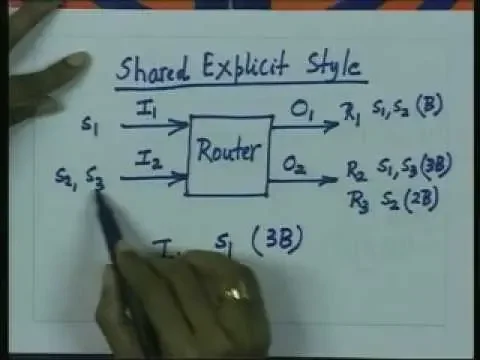 Shared Explicit Style
S1 I1 Router O1 R1 S1, S2 (B)
S2, S3 I2 O2 R2 S1, S3 (3B)
R3 S2 (2B)
I S1 (3B)